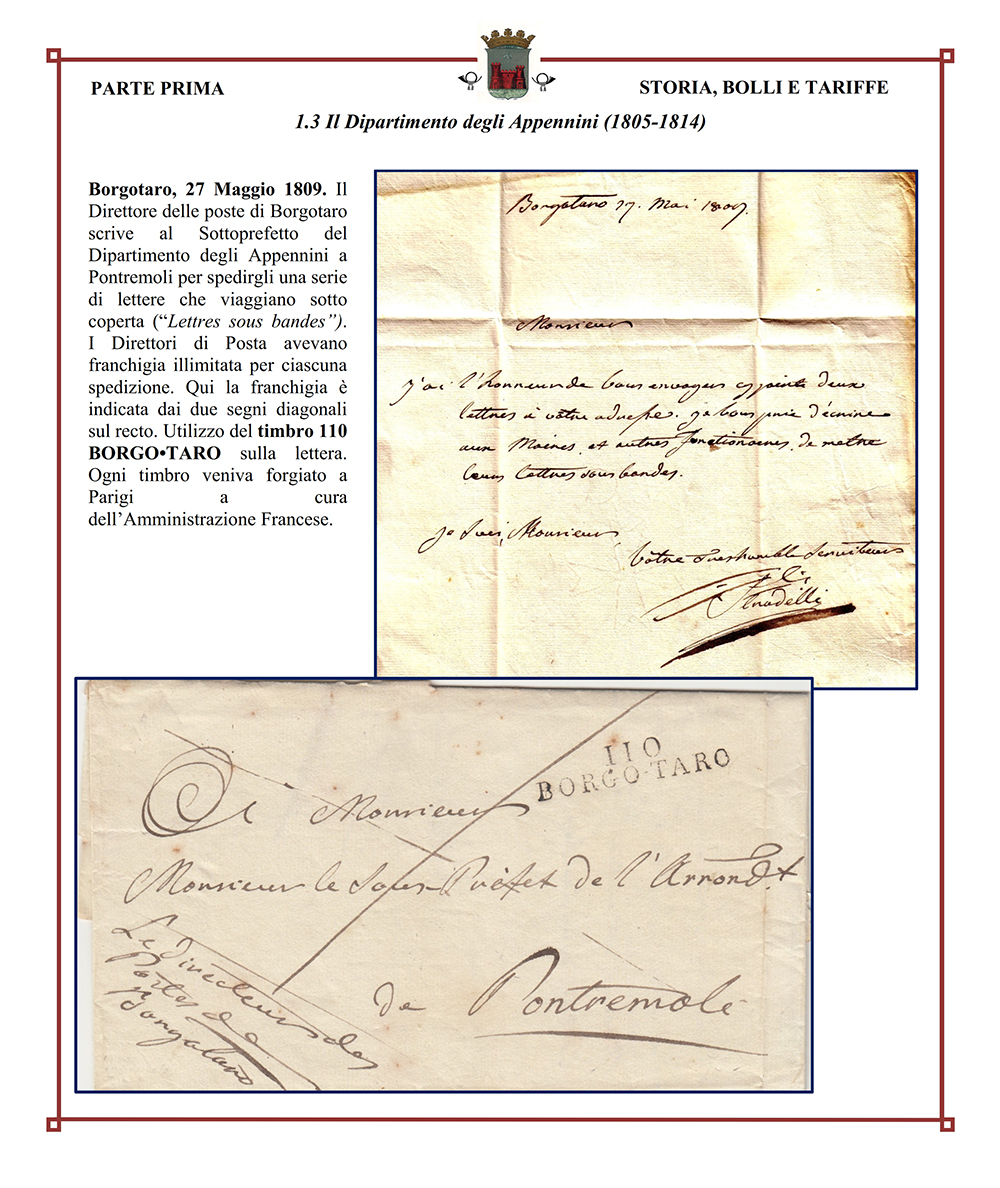 PARTE PRIMA
STORIA, BOLLI E TARIFFE
1.3 Il Dipartimento degli Appennini (1805-1814)
Borgotaro, 27 Maggio 1809. Il
Direttore delle poste di Borgotaro
scrive al Sottoprefetto del
Dipartimento degli Appennini a
Pontremoli per spedirgli una serie
di lettere che viaggiano sotto
coperta (“Lettres sous bandes”).
I Direttori di Posta avevano
franchigia illimitata per ciascuna
spedizione. Qui la franchigia è
indicata dai due segni diagonali
sul recto. Utilizzo del timbro 110
BORGO•TARO sulla lettera.
Ogni timbro veniva forgiato a
Parigi a cura
dell’Amministrazione Francese.
Borgotaro 27. Mai 1809.
Monsieur
j'ai l'honneur de vous envoyer cy joint deux
lettres à votre adresse. je vous prie d'écrire
aux Maires, et autres fonctionaires, de mettre
leurs lettres sous bandes.
je suis, Monsieur
Votre tres humble Serviteur
Stradelli
110
BORGO·TARO
A Monsieur
Monsieur le Sous-Préfet de l'Arrond.t
de Pontremoli
Le Directeur des
Postes de
Borgotaro